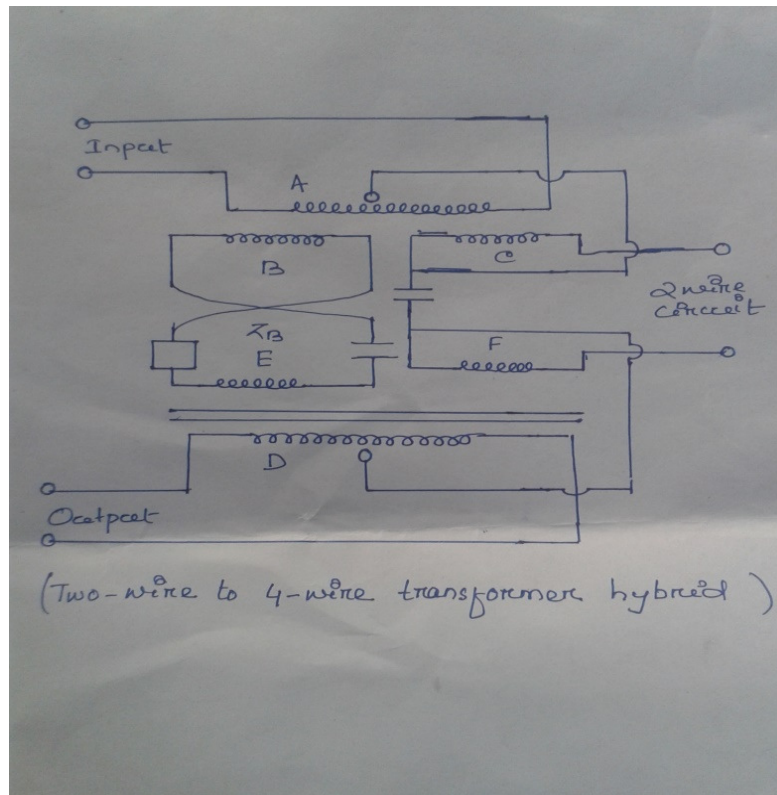 Input
A
B
C
2 wire
circuit
ZB
E
F
D
Output
(Two-wire to 4-wire transformer hybrid)